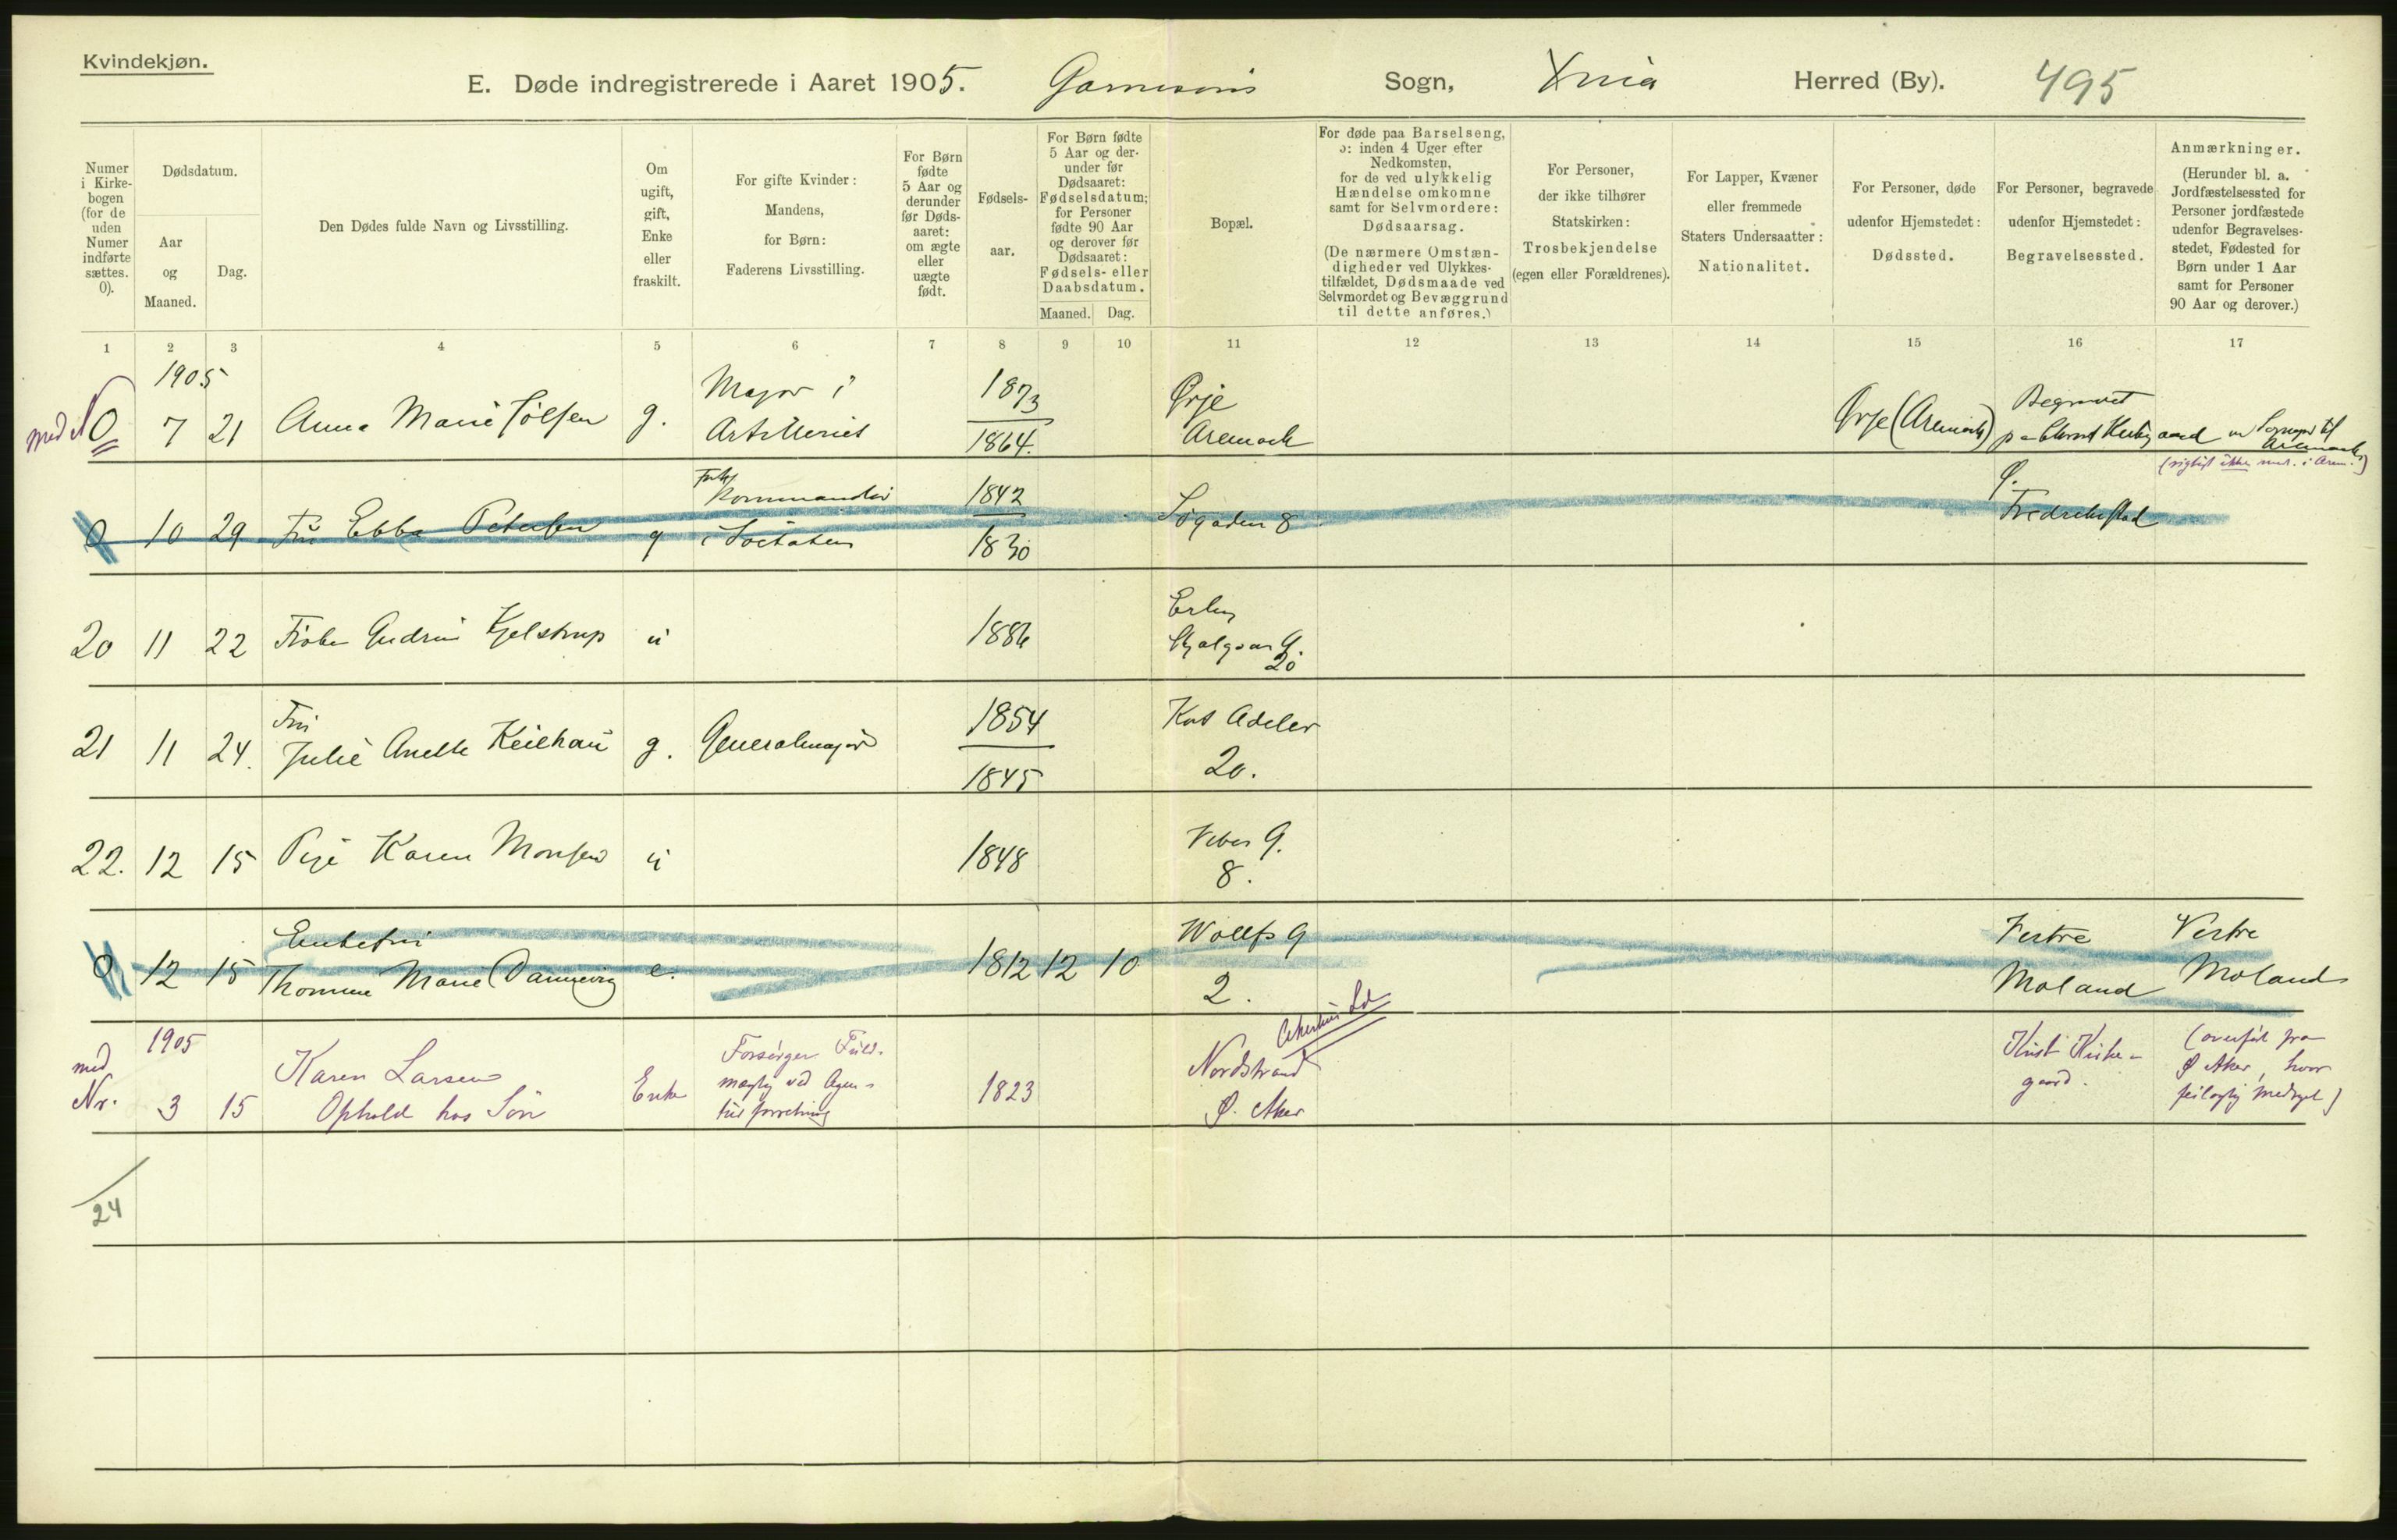 Kvindekjøn.
E. Døde indregistrerede i Aaret 1905. Garnisons Sogn, Xnia Herred (By). 495
Numer i Kirkebogen (for de uden Numer indførte sættes. 0).
Dødsdatum.
Aar og Maaned.
Dag.
Den Dødes fulde Navn og Livsstilling.
Om ugift, gift, Enke eller fraskilt.
For gifte Kvinder: Mandens, for Børn: Faderens Livsstilling.
For Børn fødte 5 Aar og derunder før Dødsaaret: om ægte eller uægte født.
Fødselsaar.
For Børn fødte 5 Aar og derunder før Dødsaaret: Fødselsdatum; for Personer fødte 90 Aar og derover før Dødsaaret: Fødsels- eller Daabsdatum.
Maaned. Dag.
Bopæl.
For døde paa Barselseng, ɔ: inden 4 Uger efter Nedkomsten, for de ved ulykkelig Hændelse omkomne samt for Selvmordere: Dødsaarsag.
(De nærmere Omstændigheder ved Ulykkestilfældet, Dødsmaade ved Selvmordet og Bevæggrund til dette anføres.)
For Personer, der ikke tilhører Statskirken: Trosbekjendelse (egen eller Forældrenes).
For Lapper, Kvæner eller fremmede Staters Undersaatter: Nationalitet.
For Personer, døde udenfor Hjemstedet: Dødssted.
For Personer, begravede udenfor Hjemstedet: Begravelsessted.
Anmærkninger.
(Herunder bl. a. Jordfæstelsessted for Personer jordfæstede udenfor Begravelsesstedet, Fødested for Børn under 1 Aar samt for Personer 90 Aar og derover.)
1 2 3 4 5 6 7 8 9 10 11 12 13 14 15 16 17
1905
0 7 21 Anna Marie Sølfsen g. Major i Artilleriet 1873 1864. Ørje Aremark Ørje (Aremark) Begravet
(rigtigt ikke med. i Arem.)
0 10 29 Fru Ebba Petersen g Kommandør i Søetaten 1842 1830 Søgaden 8 Fredrikstad
20 11 22 Frøken Gudrun Kjelstrup u 1886 Erling Skjalgsøns G. 20
21 11 24. Fru Julie Anette Keilhau g. Generalmajor 1854 1845 Kort Adelers 20.
22. 12 15 Pige Karen Monsen u 1848 Vibes G. 8.
0 12 15 Enkefru Thomine Marie Dannevig e. 1812 12 10 Wolffs G 2. Vestre Moland Vestre Moland
1905
med Nr. 3 15 Karen Larsen Ophold hos Søn Enke Forsørger Fuldmægtig ved Agenturforretning 1823 Nordstrand Ø. Aker Krist Kirkegaard. (overført fra Ø Aker, hvor feilagtig medregt)
24